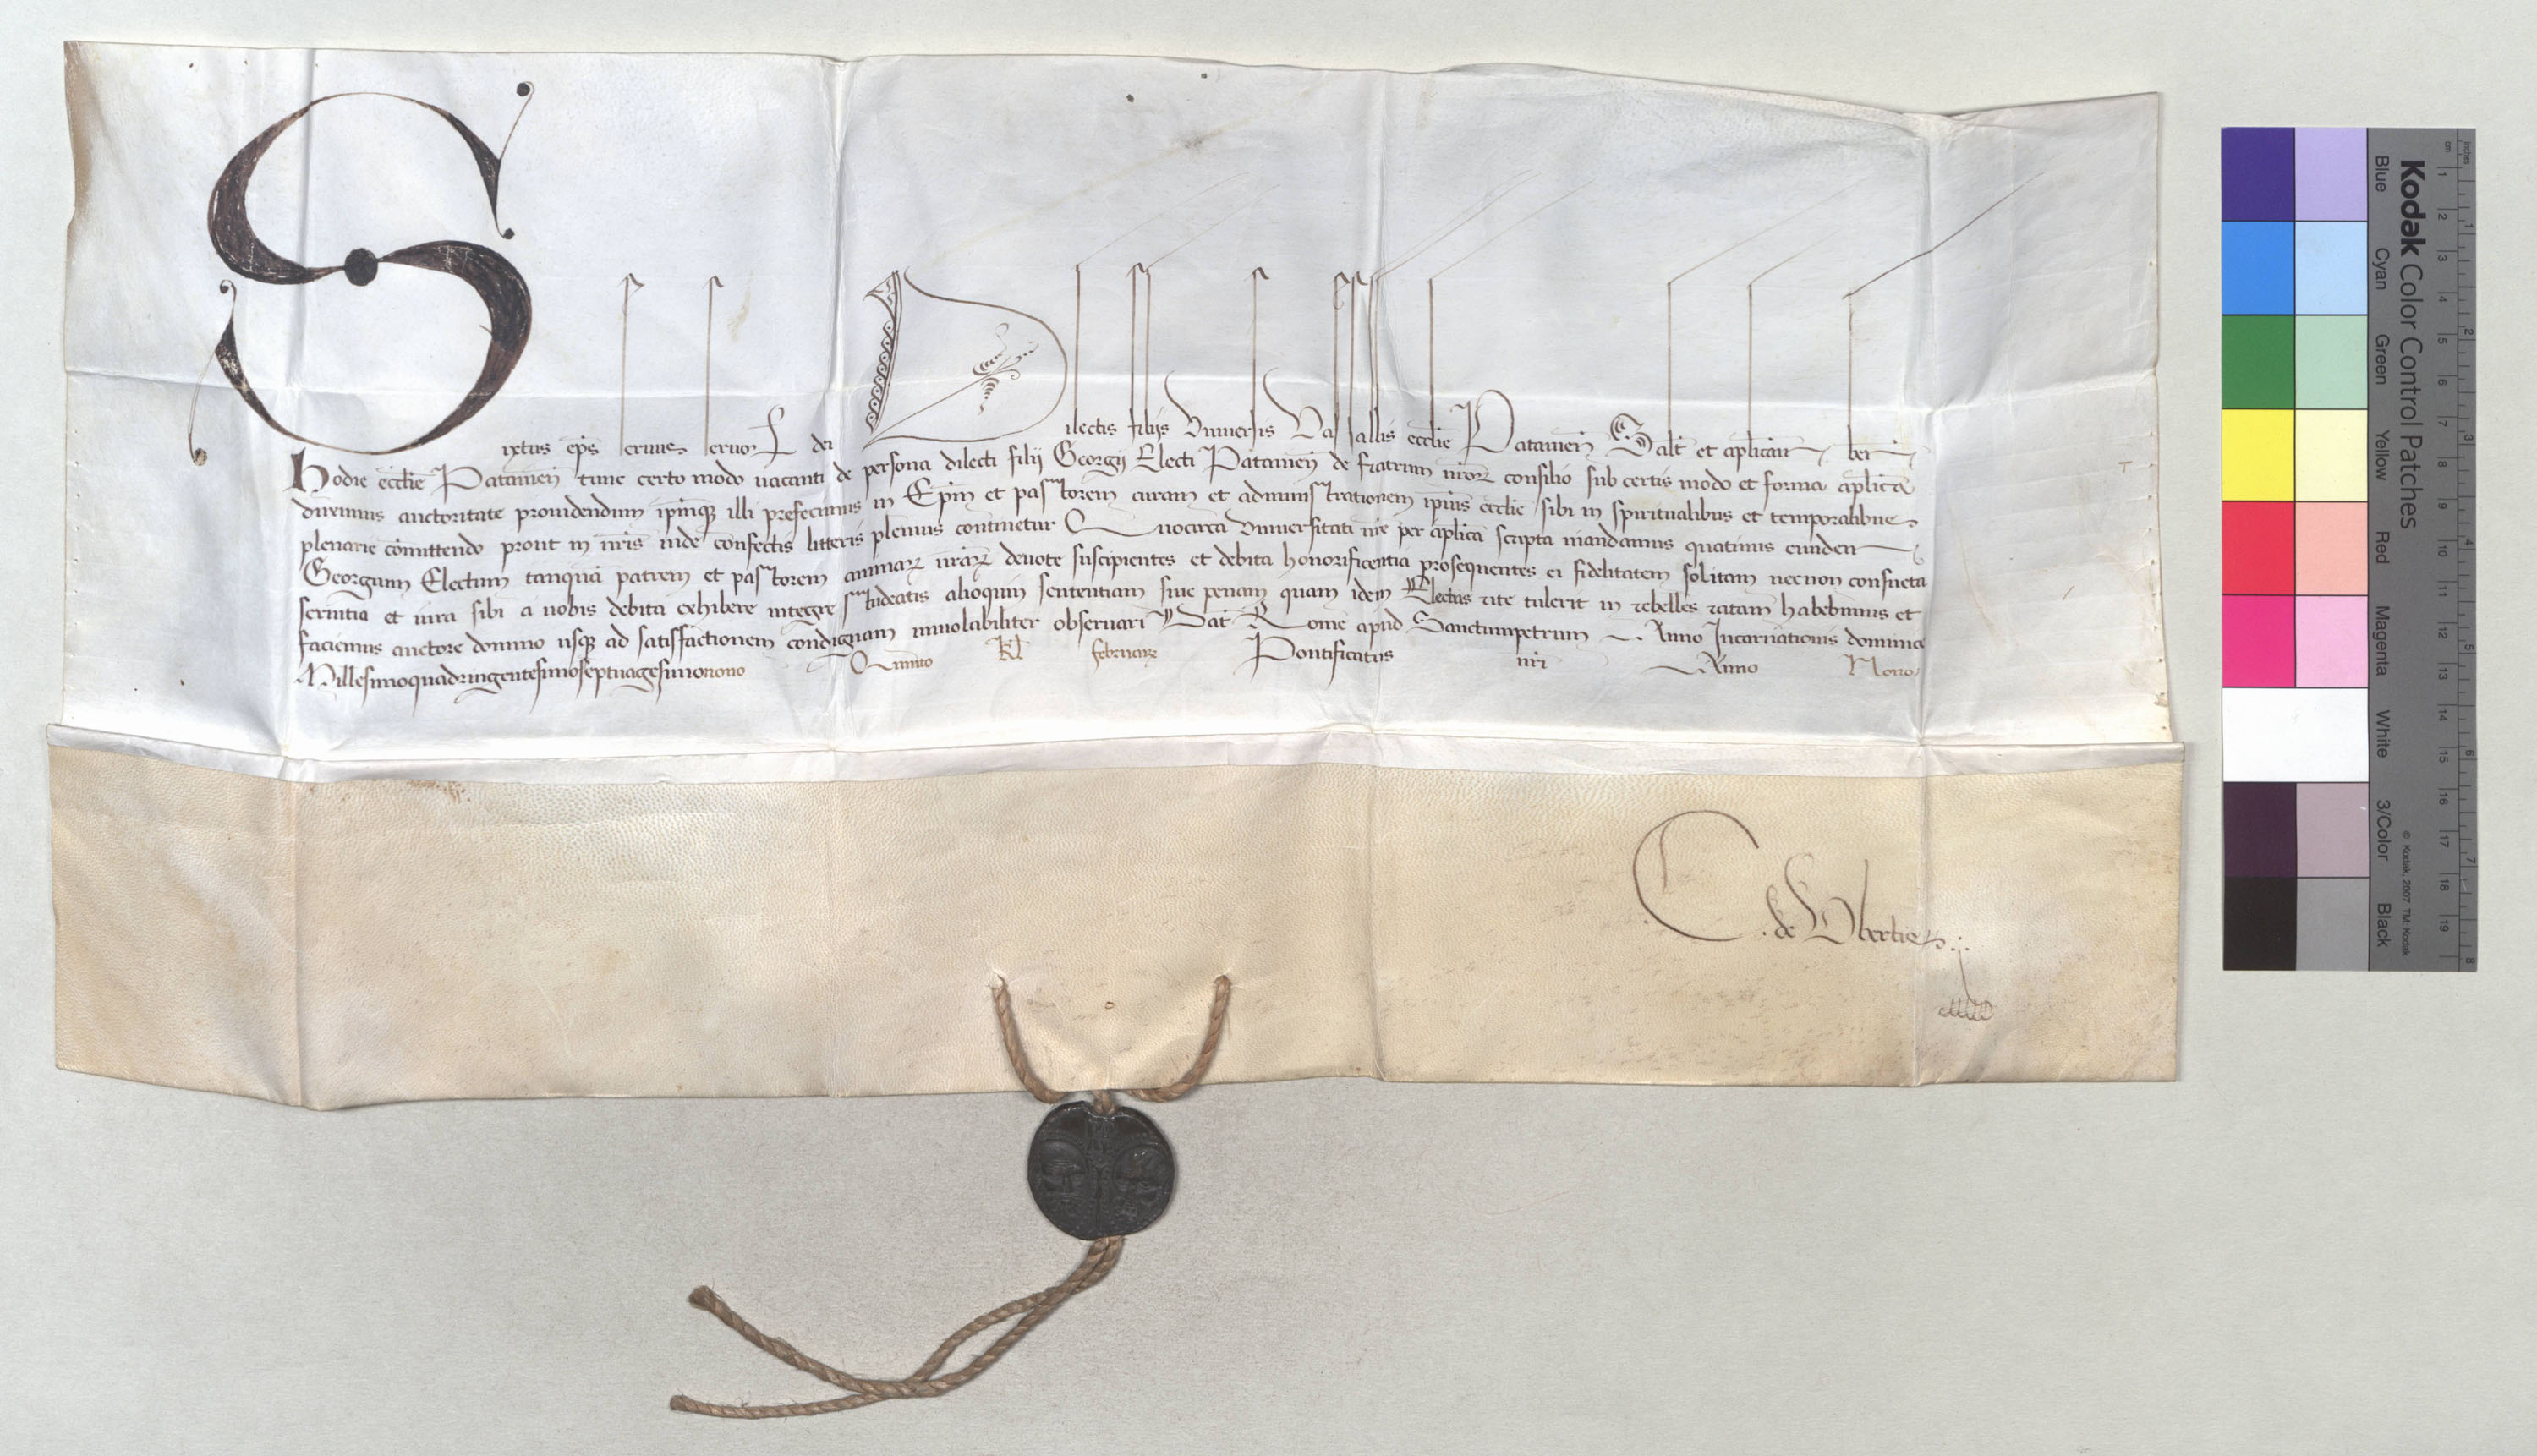 Sixtus ep̄s seruus seruoꝝ dei Dilectis filijs Vniuersis Vasallis ecc̄lie Patauien̄ Salt̄ et ap̄licam̄ ben̄
Hodie ecc̄lie Patauien̄ tunc certo modo uacanti de persona dilecti filij Georgij Electi Patauien̄ de fratrum nr̄oꝝ consilio sub certis modo et forma ap̄lica
duximus auctoritate prouidendum ip̄mqꝫ illi prefecimus in Ep̄m et pastorem curam et administrationem ip̄ius ecc̄lie sibi in spiritualibus et temporalibus
plenarie cōmittendo prout in nr̄is inde confectis litteris plenius continetur Quocirca vniuersitati vr̄e per ap̄lica scripta mandamus quatinus eundem
Georgium Electum tanquā patrem et pastorem animaꝝ vr̄aꝝ deuote suscipientes et debita honorificentia prosequentes ei fidelitatem solitam necnon consueta
seruitia et iura sibi a uobis debita exhibere integre studeatis alioquin sententiam siue penam quam idem Electus rite tulerit in rebelles ratam habebimus et
faciemus auctore domino usqꝫ ad satisfactionem condignam inuiolabiliter obseruari Dat̄ Rome apud Sanctumpetrum Anno Incarnationis dominice
Millesimoquadringentesimoseptuagesimonono Quinto kl̄ februarꝫ Pontificatus nr̄i Anno Nono
C. de Vbertis
Kodak Color Control Patches
Blue Cyan Green Yellow Red Magenta White 3/Color Black
© Kodak, 2007 TM: Kodak
inches 1 2 3 4 5 6 7 8
cm 1 2 3 4 5 6 7 8 9 10 11 12 13 14 15 16 17 18 19